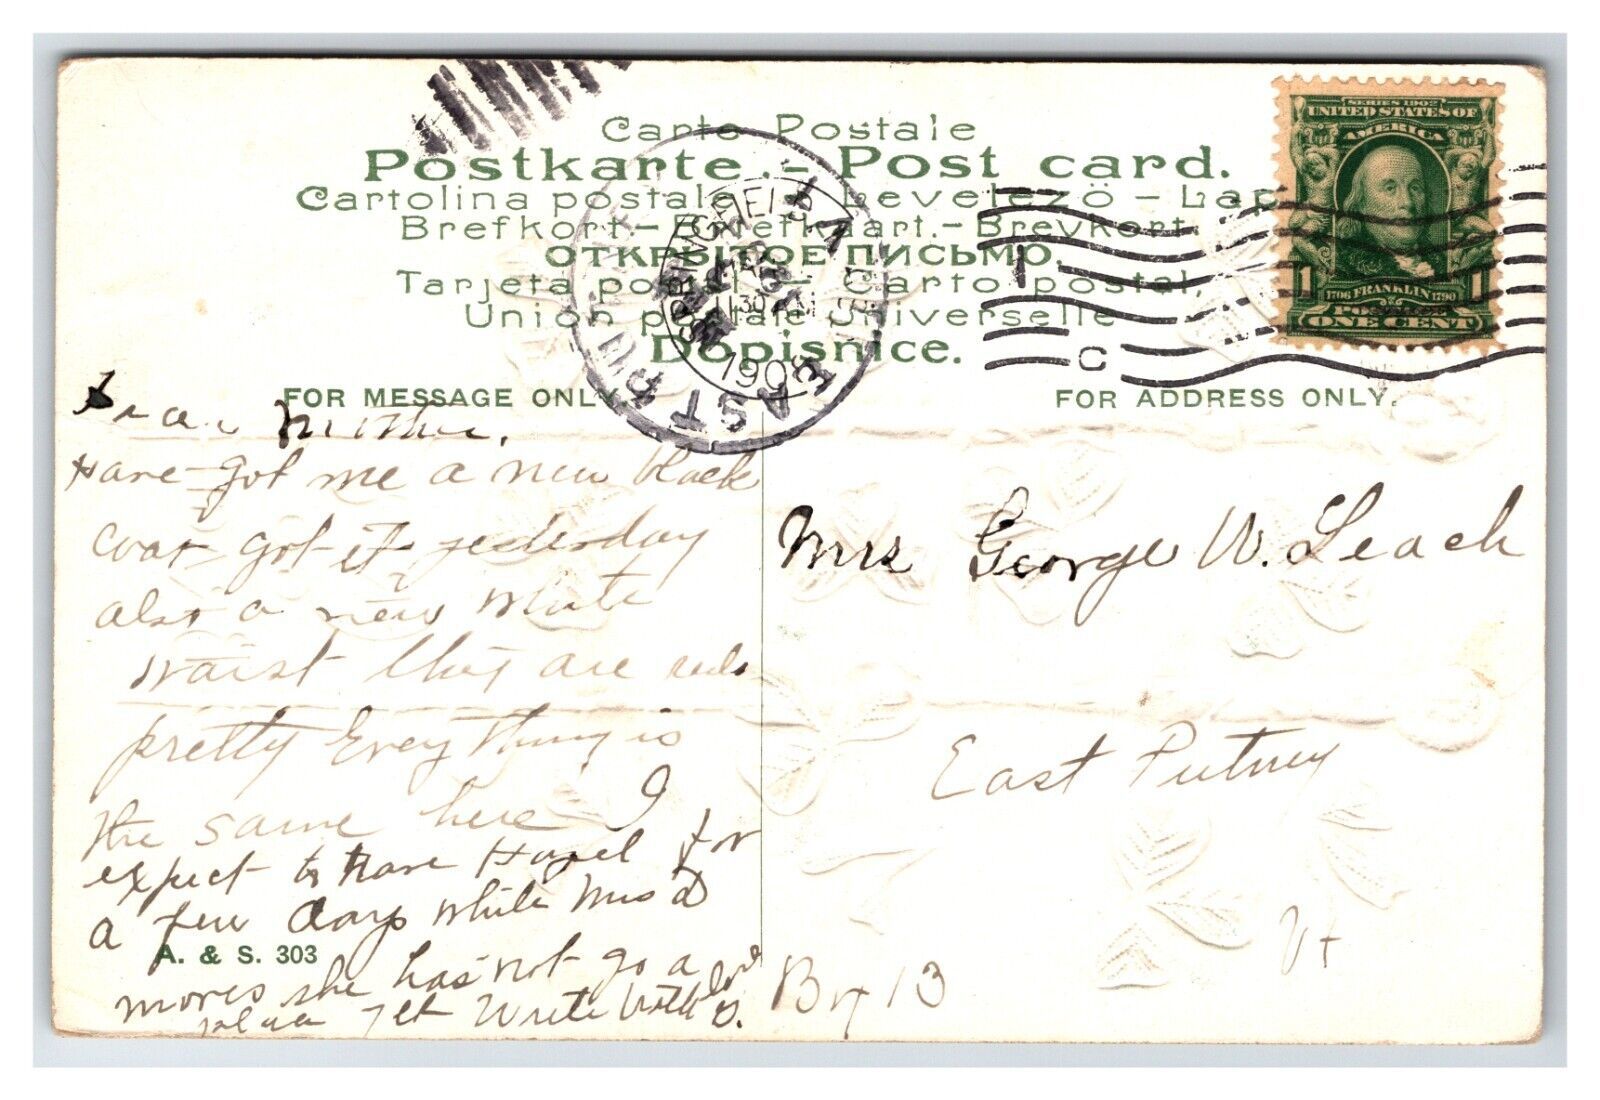 Carte Postale
Postkarte. - Post card.
Cartolina postale - Levelezö - Lap
Brefkort. - Briefkaart. - Brevkort.
ОТКРЫТОЕ ПИСЬМО.
Tarjeta postal - Carto postal,
Union postale universelle
Dopisnice.
SERIES 1902
UNITED STATES OF
AMERICA
1 1
1706 FRANKLIN 1790
POSTAGE
ONE CENT
SPRINGFIELD
1130
1908
EAST PUTNEY
C
FOR MESSAGE ONLY.
Dear Mother,
Have got me a new black
coat got it yesterday
also a new white
waist they are real
pretty Every thing is
the same here I
expect to have Hazel for
a few days while Mrs D
moves she has not go a
place yet Write with love
D.
A. & S. 303
FOR ADDRESS ONLY.
Mrs George W. Leach
East Putney
Vt
Bx 13